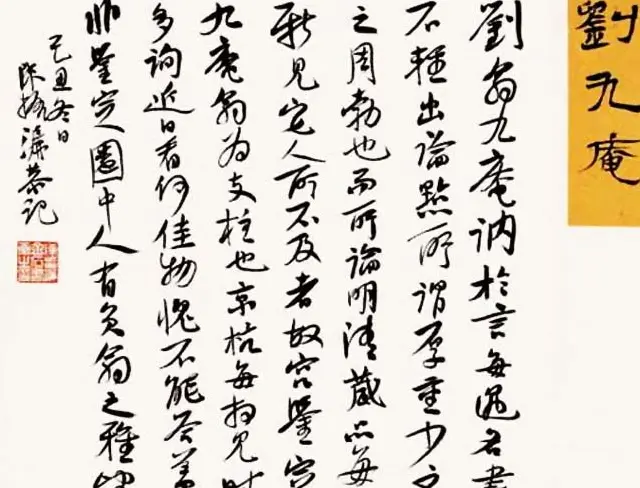 劉九庵
劉翁九庵訥於言每遇名書
不輕出論點所謂厚重少文
之周勃也而所論明清藏品每
新見宅人所不及者故宫鑒定
九庵翁为支柱也京杭每相見時
多詢近日看何佳物愧不能答蓋
非鑒定人圈中人有负翁之雅
己丑冬日
陈振濂恭记